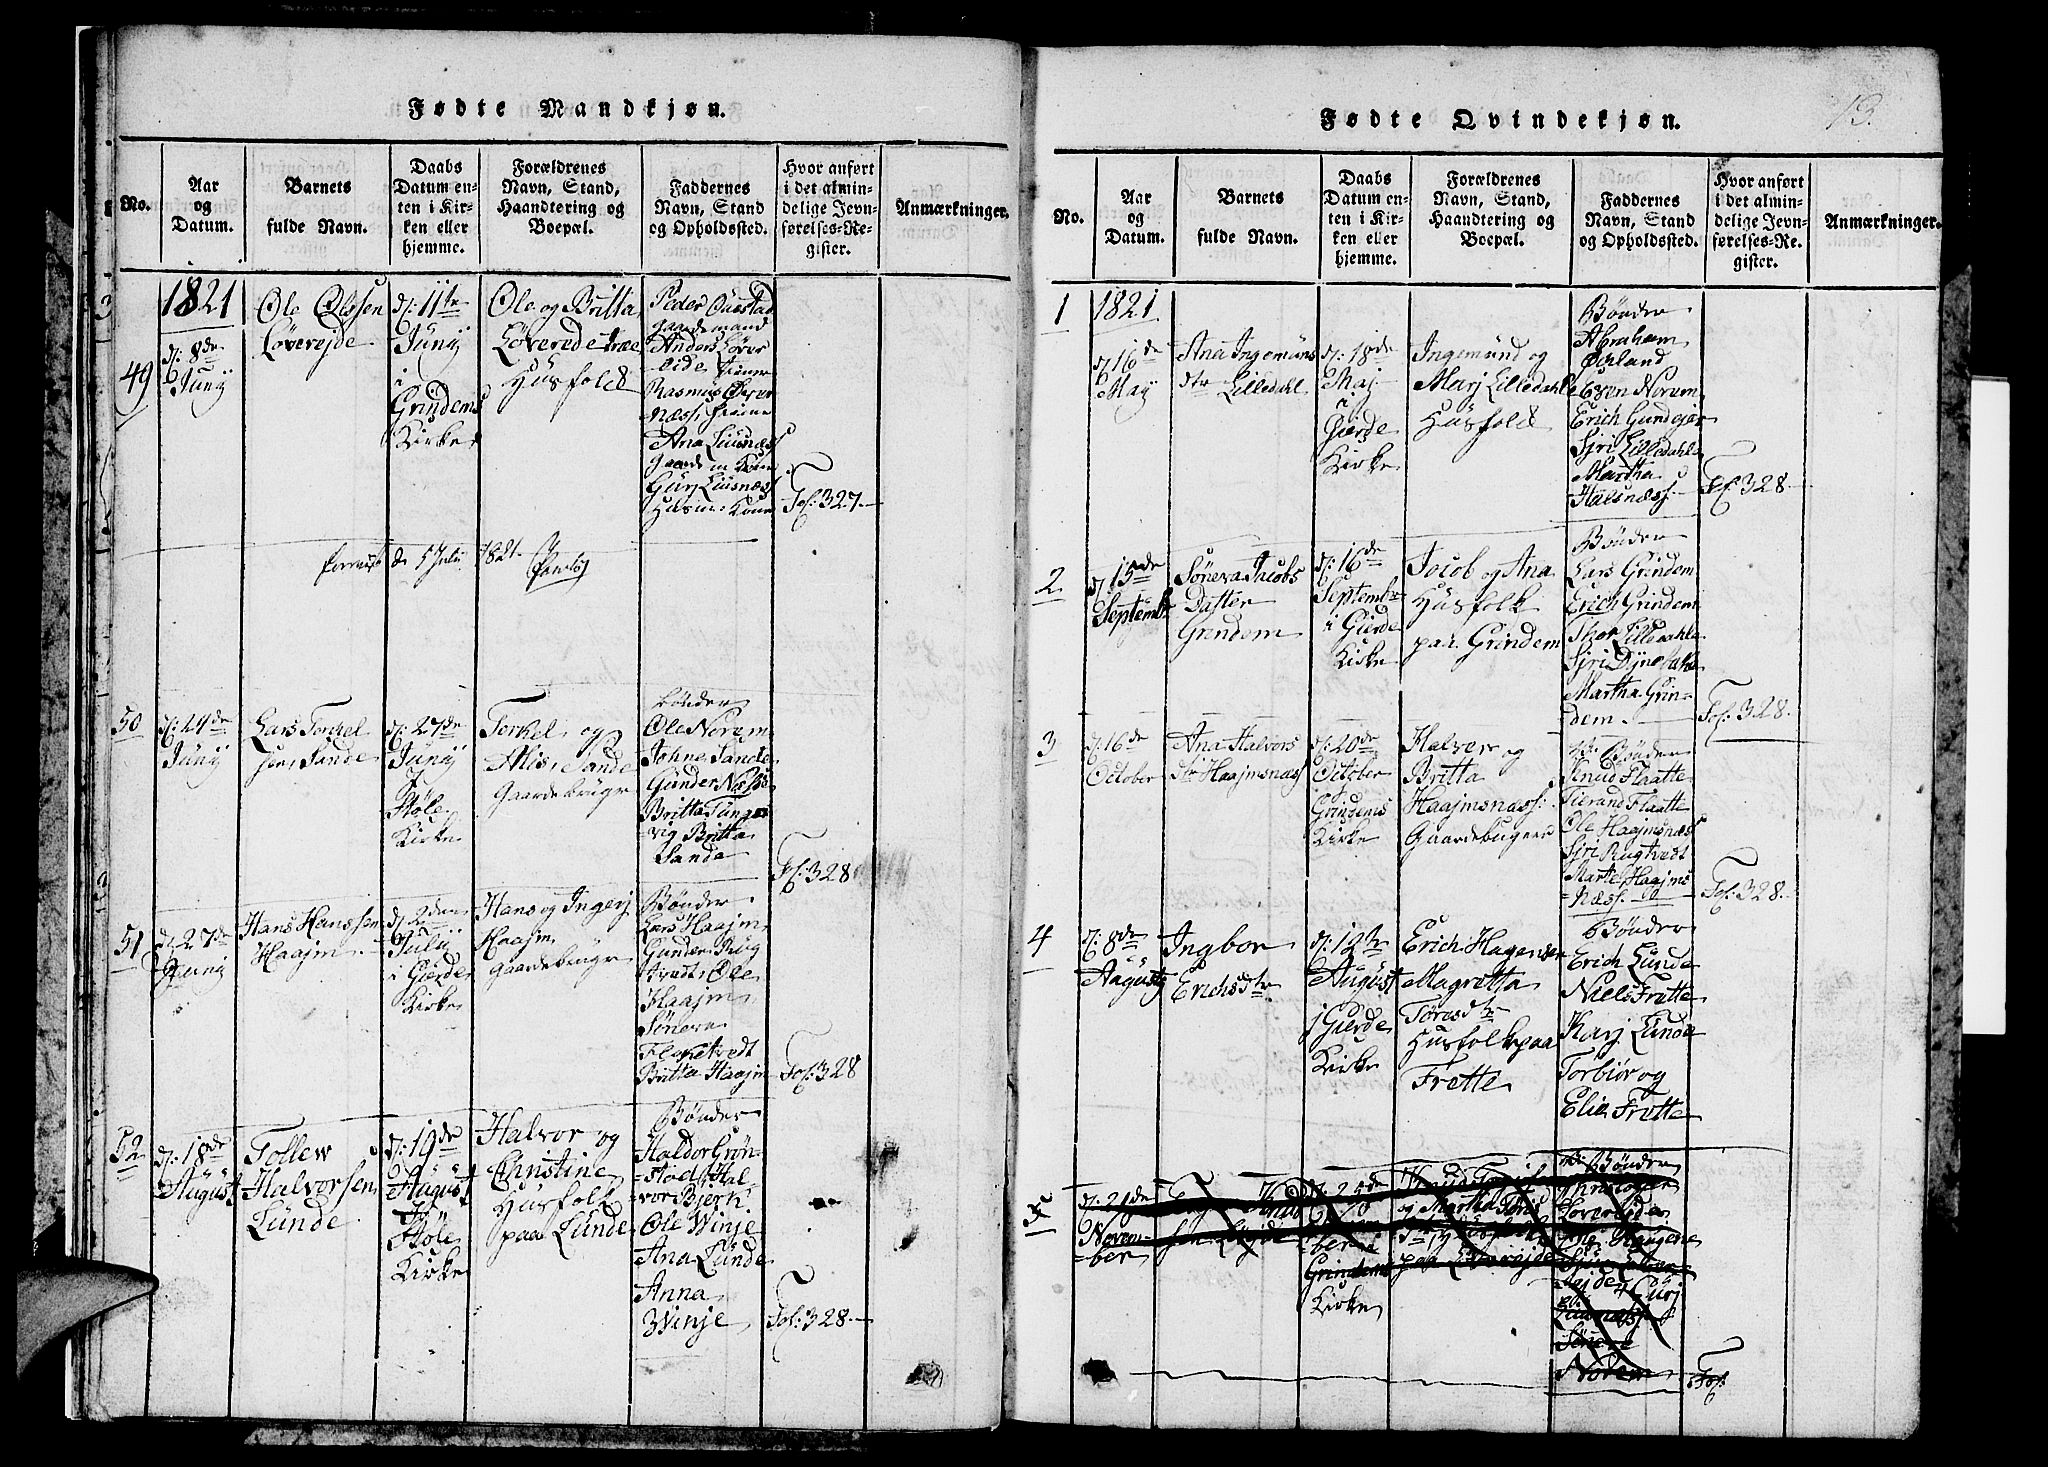 Fødte Mandkjøn.
No.
Aar
og
Datum.
Barnets
fulde Navn.
Daabs
Datum en-
ten i Kir-
ken eller
hjemme.
Forældrenes
Navn, Stand,
Haandtering og
Boepæl.
Faddernes
Navn, Stand
og Opholdssted.
Hvor anført
i det almin-
delige Jevn-
førelses-Re-
gister.
Anmærkninger.
49
1821
d: 8de
Juny
Ole Olssen
Løvereide
d: 11te
Juny
i
Grindems
Kirke
Ole og Britta
Husfolk
Peder
gaardemand
Anders
Rasmus
Næss,
Ana Liusnæss
Gurj Liusnæss
Kone
Fol: 327.
5 July 1821.
50
d: 24de
Juny
Lars Torkel
sen Sande
d: 27de
Juny
I
Støle
Kirke
Torkel og
Sande
Gaardebruge
Bønder
Ole Norem
Johne Sande
Gunder
Britta Tunge
vig Britta
Sande
Fol: 328
51
d: 27de
Juny
Hans Hanssen
Haajm
d: 2den
July
i Gjerde
Kirke
Hans og Ingerj
Haajm
gaardebruge
Bønder
Lars Haajm
Gunder Rug
tvedt Ole
Haajm
Søneva
Flaketvedt
Britta Haajm
Fol: 328
52
d: 18de
August
Tollew
Halvorsen
Lunde
d: 19de
August
I
Støle
Kirke
Halvor og
Christine
Husfolk
paa Lunde
Bønder
Haldor Grøn-
stad Hal-
vor Bjerk
Ole Winje
Ana Lunde
Anna
Winje
Fol: 328.
Fødte Qvindekjøn.
13.
No.
Aar
og
Datum.
Barnets
fulde Navn.
Daabs
Datum en-
ten i Kir-
ken eller
hjemme.
Forældrenes
Navn, Stand,
Haandtering og
Boepæl.
Faddernes
Navn, Stand
og Opholdssted.
Hvor anført
i det almin-
delige Jevn-
førelses-Re-
gister.
Anmærkninger.
1
1821
d: 16de
May
Ana Ingemuns
dtr Lilledahl
d: 18de
Maj
i
Gjerde
Kirke
Ingemund og
Marj Lilledahl
Husfolk
Bønder
Abraham
Norem
Erich
Sjri Lilledahl
Martha
Halsnæss.
Fol: 328.
2
d: 15de
Septembr
Søneva Jacobs
Datter
Grindem
d: 16de
Septembr
i Gjerde
Kirke
Jacob og Ana
Husfolk
paa Grindem
Bønder
Lars Grindem
Erich Grindem
Thor Lilledahl
Sjri
Martha Grin-
dem.
Fol: 328.
3
d: 16de
October
Ana Halvors
dtr Haajmsnæss
d: 20de
October
I
Grindems
Kirke
Halvor og
Britta
Haajmsnæss.
Gaardebrugere
Bønder
Knud Flaatte
Tierand Flaatte
Ole Haajmsnæss
Sjri Rugtvedt
Marte Haajms
næss.
Fol: 328.
4
d: 8de
August
Ingbor
Erichsdtr
d: 12te
August
j Gjerde
Kirke
Erich Hagensen
Magretta
Toresdtr
Husfolk paa
Frette
Bønder
Erich Lunde
Niels Frette
Karj Lunde
Torbiør og
Elie Frette
5
d: 21de
Novem-
ber
d: 25de
ber i
Grindems
Kirke
Bønder
Gurj
Søneve
Norem
Fol: